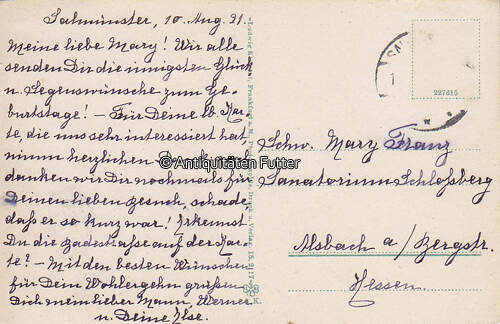 Salmünster, 10. Aug. 21.
Meine liebe Mary! Wir alle
senden Dir die innigsten Glück
u. Segenswünsche zum Ge-
burtstage! – Für Deine lb. Kar-
te, die uns sehr interessiert hat,
nimm herzlichen Dank. Auch
danken wir Dir nochmals für
Deinen lieben Besuch, schade
daß er so kurz war! Erkennst
Du die Badestraße auf der Kar-
te? – Mit den besten Wünschen
für Dein Wohlergehn grüßen
Dich mein lieber Mann, Werner
u. Deine Ilse.
©Antiquitäten Futter
227815
Schw. Mary Franz
Sanatorium Schloßberg
Alsbach a/Bergstr.
Hessen.